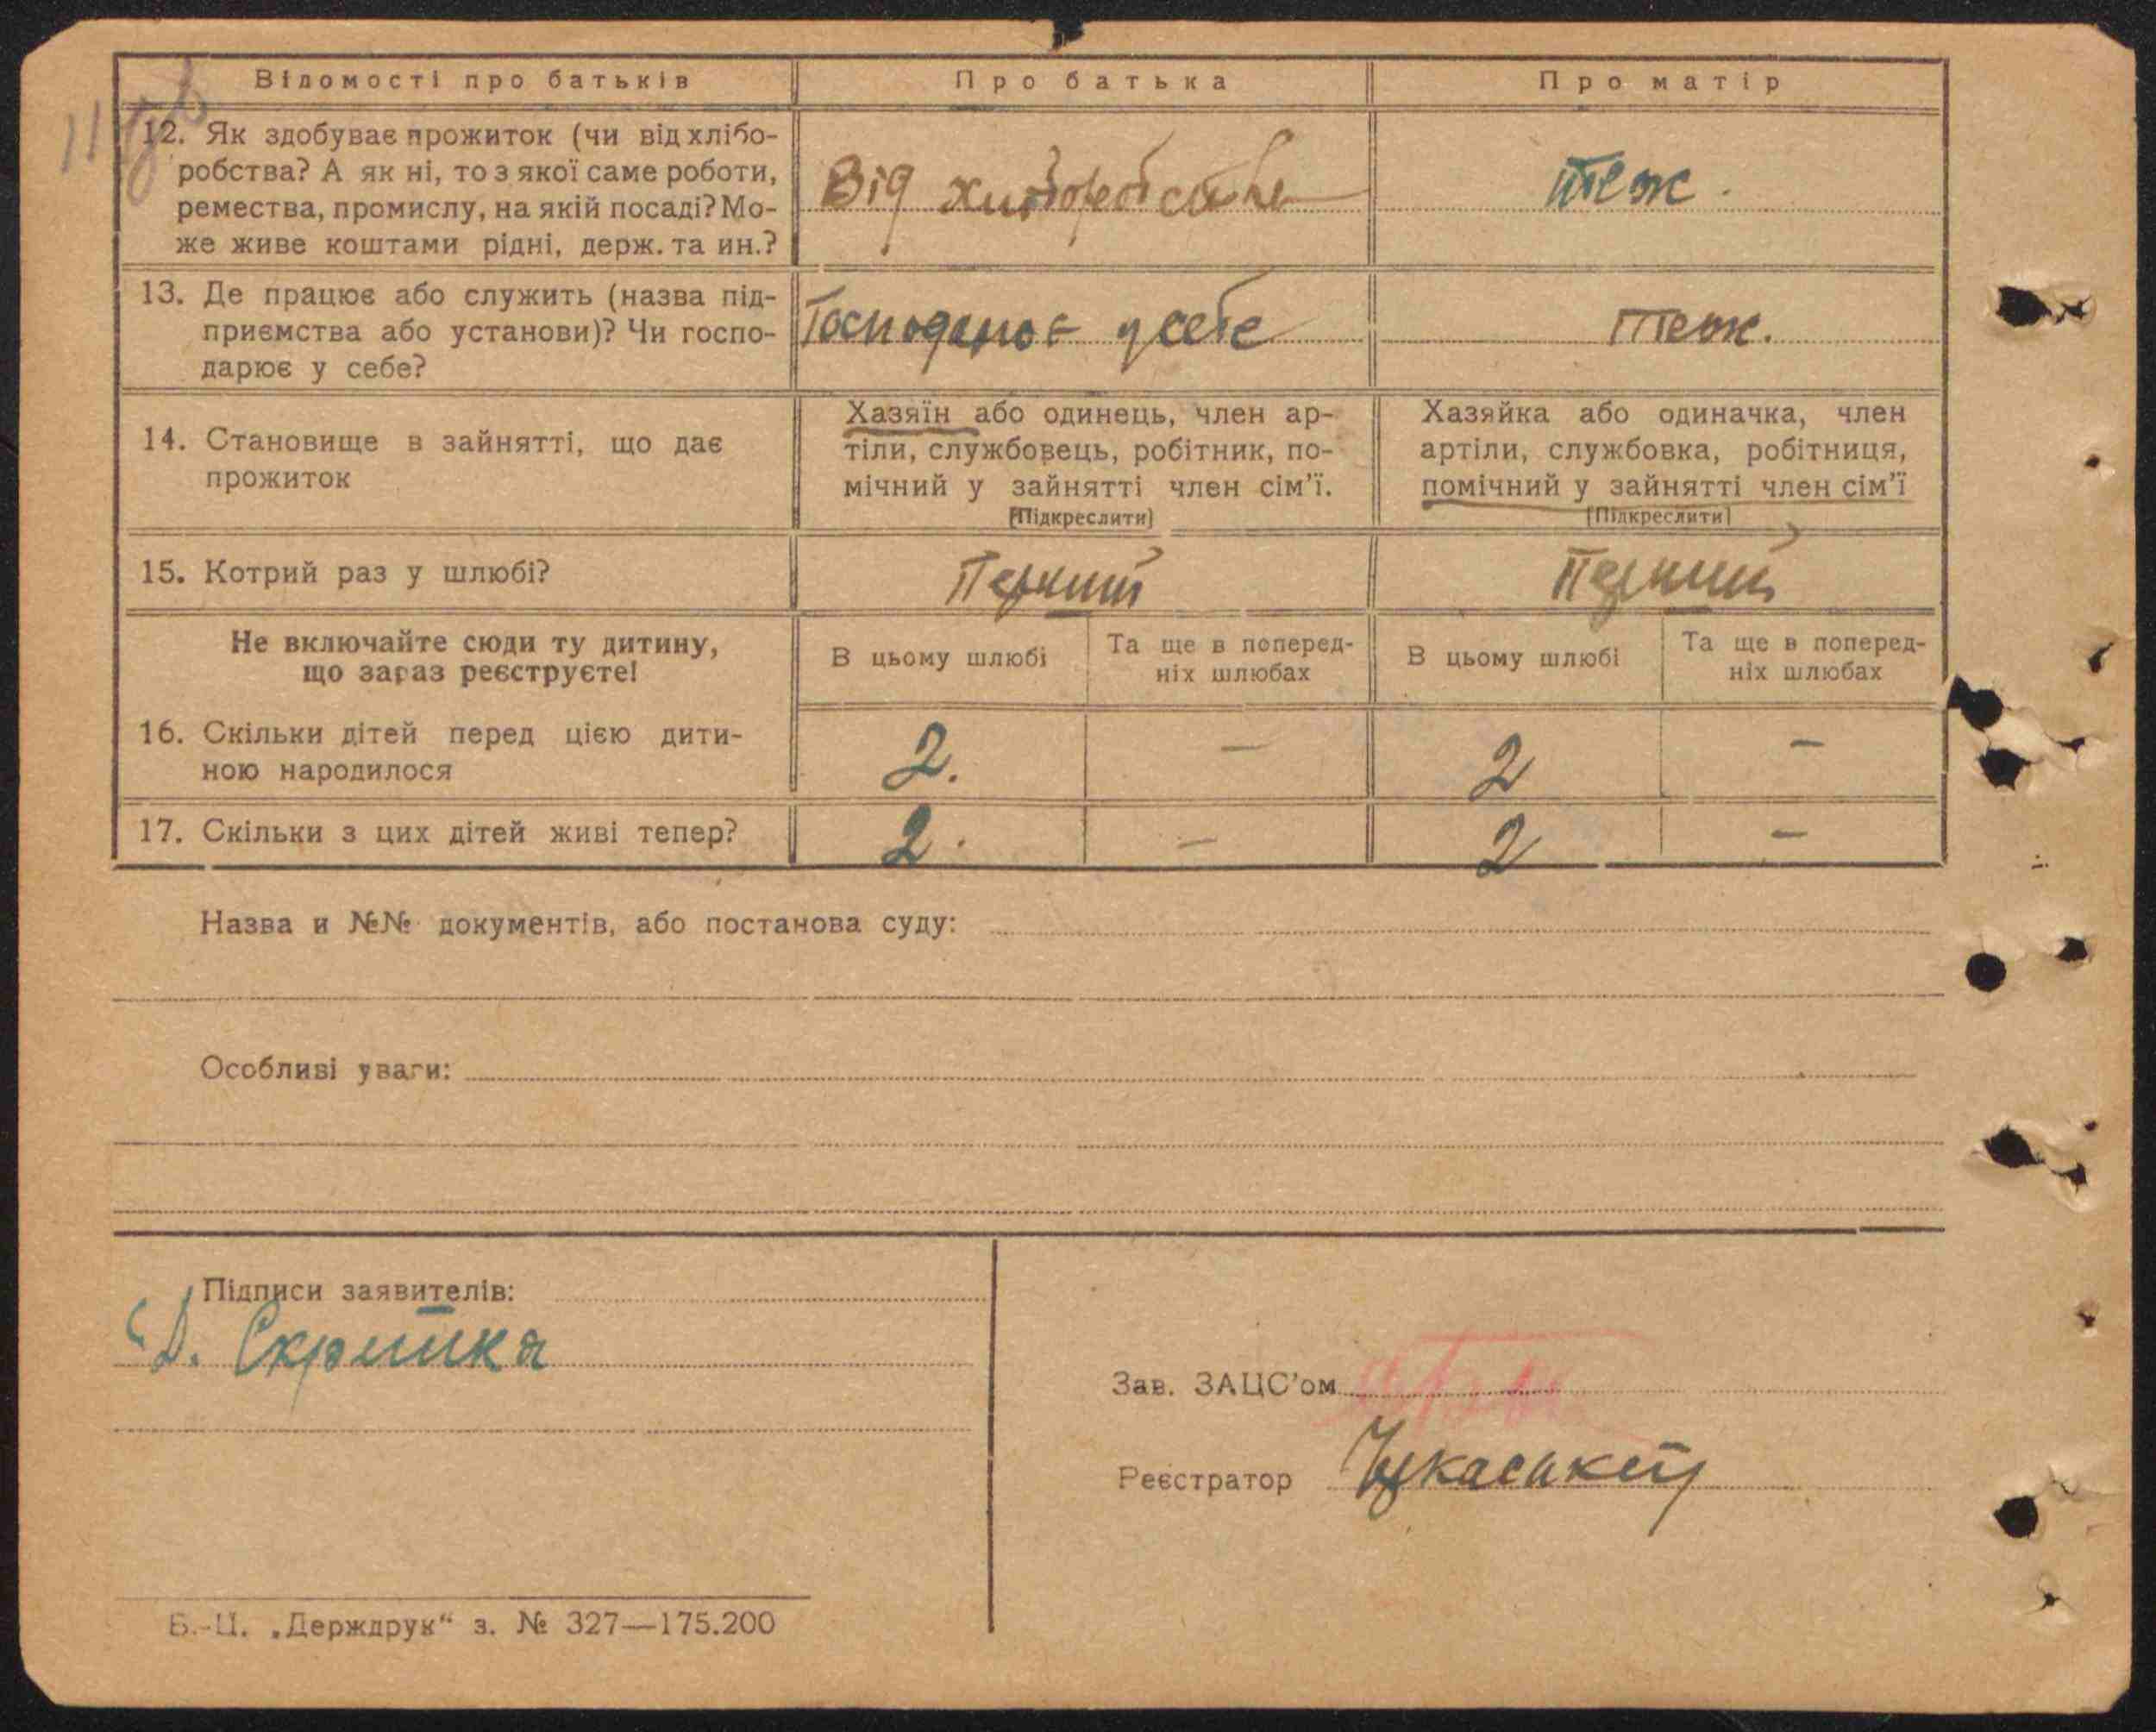 Відомості про батьків
Про батька
Про матір
12. Як здобуває прожиток (чи від хлібо-
робства? А як ні, то з якої саме роботи,
ремества, промислу, на якій посаді? Мо-
же живе коштами рідні, держ. та ин.?
Від хліборобства
теж.
13. Де працює або служить (назва під-
приємства або установи)? Чи госпо-
дарює у себе?
Господарює у себе
теж.
14. Становище в зайнятті, що дає
прожиток
Хазяїн або одинець, член ар-
тіли, службовець, робітник, по-
мічний у зайнятті член сім'ї.
(Підкреслити)
Хазяйка або одиначка, член
артіли, службовка, робітниця,
помічний у зайнятті член сім'ї
(Підкреслити)
15. Котрий раз у шлюбі?
Перший
Перший
Не включайте сюди ту дитину,
що зараз реєструєте!
В цьому шлюбі
Та ще в поперед-
ніх шлюбах
В цьому шлюбі
Та ще в поперед-
ніх шлюбах
16. Скільки дітей перед цією дити-
ною народилося
2. — 2 —
17. Скільки з цих дітей живі тепер?
2. — 2 —
Назва и №№ документів, або постанова суду:
Особливі уваги:
Підписи заявителів:
Д. Скрипка
Зав. ЗАЦС'ом
Реєстратор
Б.-Ц. „Держдрук“ з. № 327—175.200